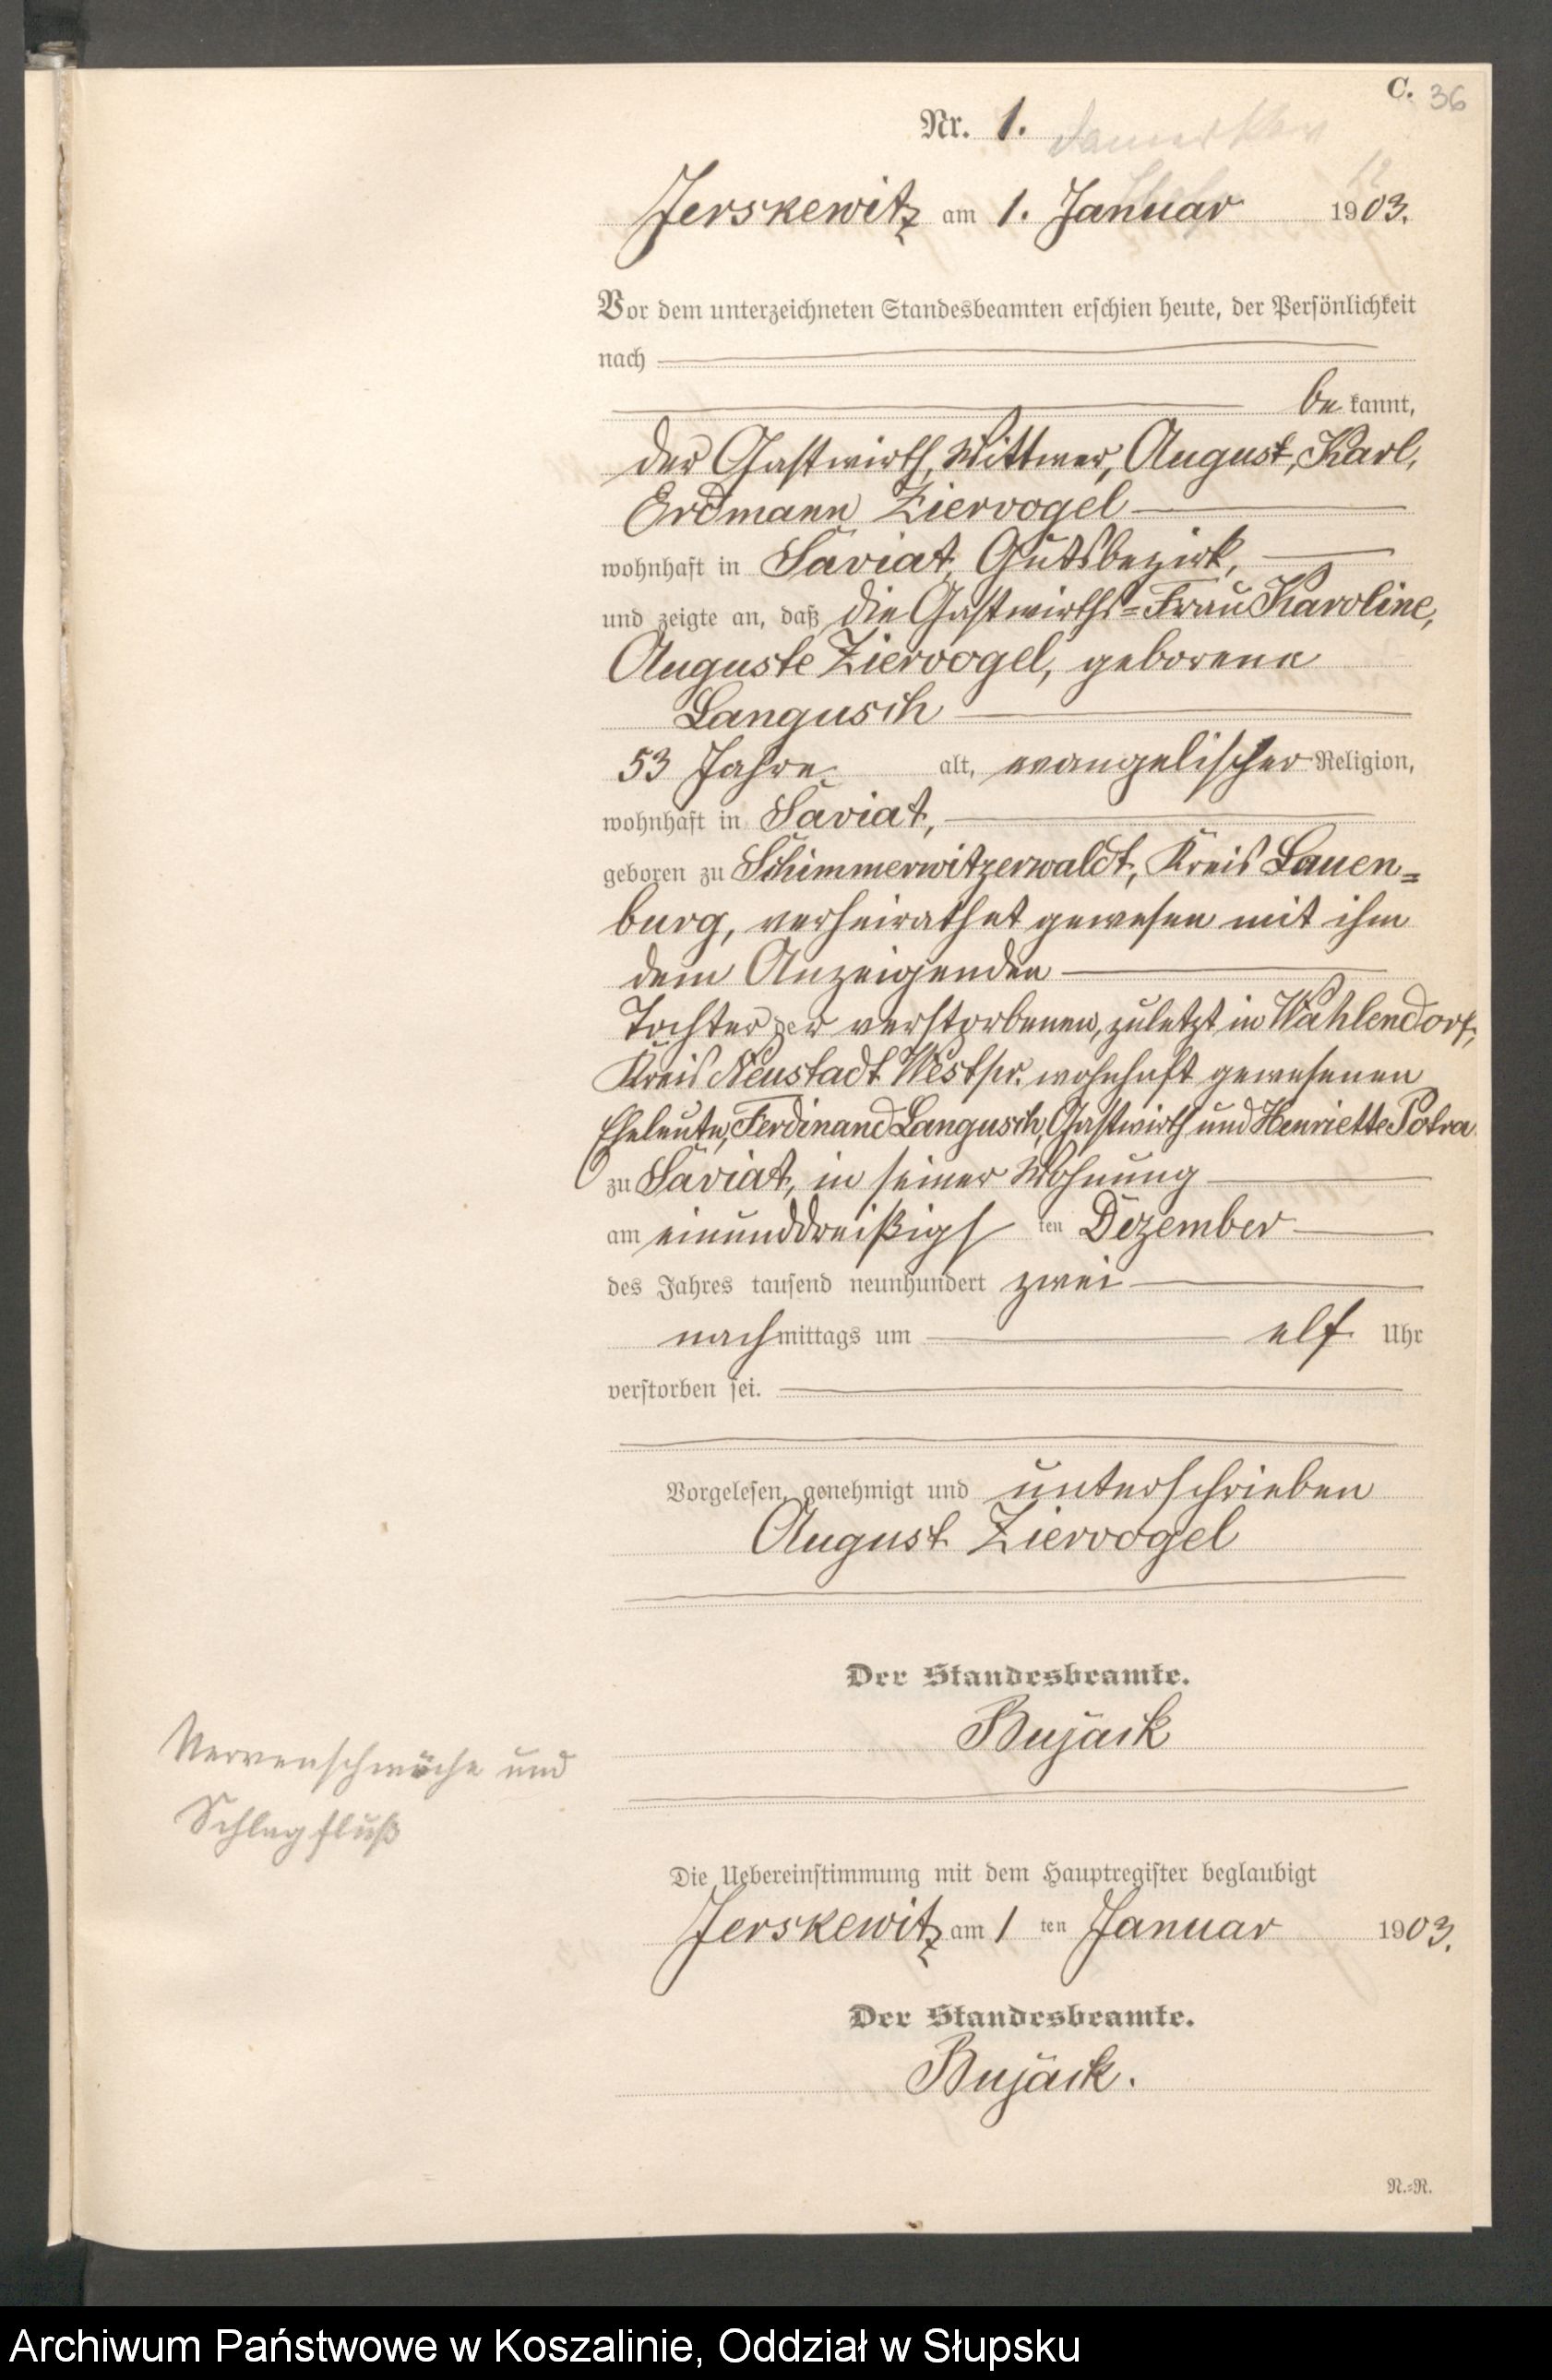 C. 36
Nr. 1.
Jerskewitz am 1. Januar 1903.
Vor dem unterzeichneten Standesbeamten erschien heute, der Persönlichkeit
nach
be kannt,
der Gastwirth, Wittwer, August, Karl,
Erdmann Ziervogel
wohnhaft in Saviat, Gutsbezirk,
und zeigte an, daß die Gastwirths-Frau Karoline,
Auguste Ziervogel, geborene
Langusch
53 Jahre alt, evangelischer Religion,
wohnhaft in Saviat,
geboren zu Schimmerwitzerwaldt, Kreis Lauen=
burg, verheirathet gewesen mit ihm
dem Anzeigenden
Tochter der verstorbenen, zuletzt in Wahlendorf,
Kreis Neustadt Westpr. wohnhaft gewesenen
Eheleute, Ferdinand Langusch, Gastwirth und Henriette Potra
zu Saviat, in seiner Wohnung
am einunddreißigs ten Dezember
des Jahres tausend neunhundert zwei
nachmittags um elf Uhr
verstorben sei.
Vorgelesen, genehmigt und unterschrieben
August Ziervogel
Der Standesbeamte.
Bujack
Nervenschwäche und
Schlagfluß
Die Uebereinstimmung mit dem Hauptregister beglaubigt
Jerskewitz am 1 ten Januar 1903.
Der Standesbeamte.
Bujack.
N.=R.
Archiwum Państwowe w Koszalinie, Oddział w Słupsku